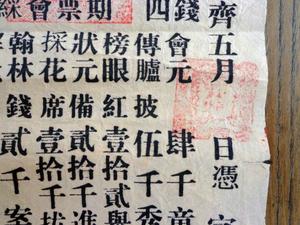 齊五月 日憑
錢會元肆千童
四傳臚披伍千委
期榜眼紅壹拾千貳舉
票狀元備貳拾千進
會採花席壹拾千
綵翰林錢貳千案